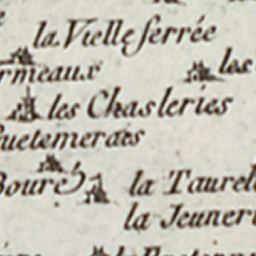 la Vielle ferrée
rmeaux les
les Chasleries
uetemerais
Bouré la Taurel
la Jeuneri